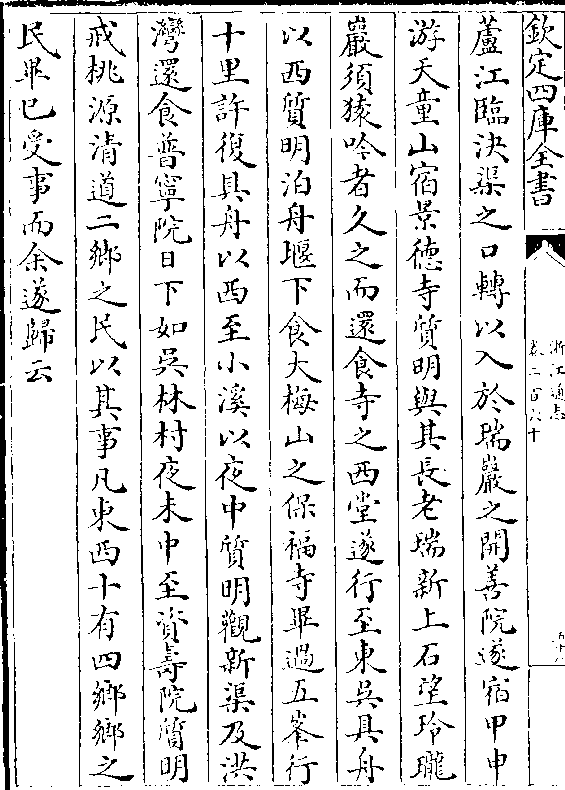 欽定四庫全書
浙江通志
卷二百六十
蘆江臨決渠之口轉以入於瑞巖之開善院遂宿甲申
游天童山宿景德寺質明與其長老瑞新上石望玲瓏
巖須猿吟者久之而還食寺之西堂遂行至東吳具舟
以西質明泊舟堰下食大梅山之保福寺畢過五峯行
十里許復具舟以西至小溪以夜中質明觀新渠及洪
灣還食普寧院日下如吳林村夜未中至資壽院質明
戒桃源清道二鄉之民以其事凡東西十有四鄉鄉之
民畢已受事而余遂歸云